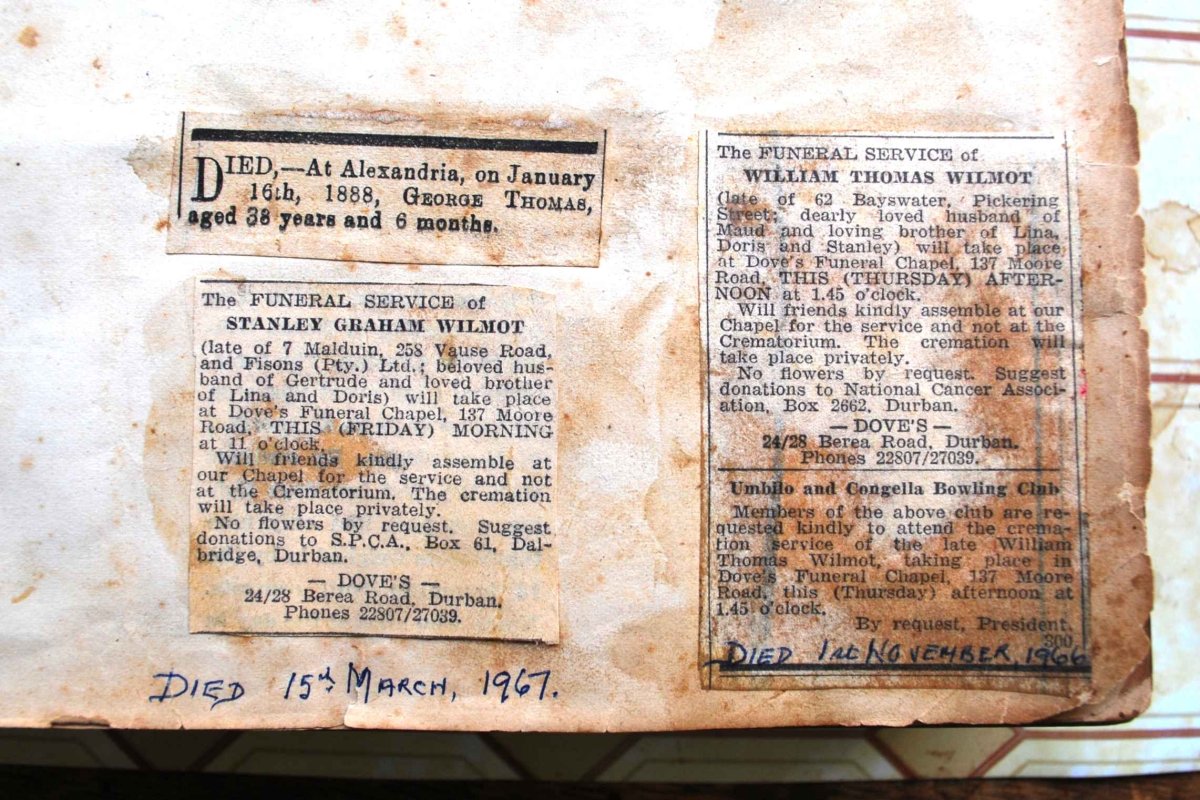 DIED,—At Alexandria, on January
16th, 1888, GEORGE THOMAS,
aged 38 years and 6 months.
The FUNERAL SERVICE of
STANLEY GRAHAM WILMOT
(late of 7 Malduin, 258 Vause Road,
and Fisons (Pty.) Ltd.; beloved hus-
band of Gertrude and loved brother
of Lina and Doris) will take place
at Dove's Funeral Chapel, 137 Moore
Road, THIS (FRIDAY) MORNING
at 11 o'clock.
Will friends kindly assemble at
our Chapel for the service and not
at the Crematorium. The cremation
will take place privately.
No flowers by request. Suggest
donations to S.P.C.A., Box 61, Dal-
bridge, Durban.
— DOVE'S —
24/28 Berea Road, Durban.
Phones 22807/27039.
DIED 15th MARCH, 1967.
The FUNERAL SERVICE of
WILLIAM THOMAS WILMOT
(late of 62 Bayswater, Pickering
Street; dearly loved husband of
Maud and loving brother of Lina,
Doris and Stanley) will take place
at Dove's Funeral Chapel, 137 Moore
Road, THIS (THURSDAY) AFTER-
NOON at 1.45 o'clock.
Will friends kindly assemble at our
Chapel for the service and not at the
Crematorium. The cremation will
take place privately.
No flowers by request. Suggest
donations to National Cancer Associ-
ation, Box 2662, Durban.
— DOVE'S —
24/28 Berea Road, Durban.
Phones 22807/27039.
Umbilo and Congella Bowling Club
Members of the above club are re-
quested kindly to attend the crema-
tion service of the late William
Thomas Wilmot, taking place in
Dove's Funeral Chapel, 137 Moore
Road, this (Thursday) afternoon at
1.45 o'clock.
By request, President.
300
DIED 1st NOVEMBER, 1966